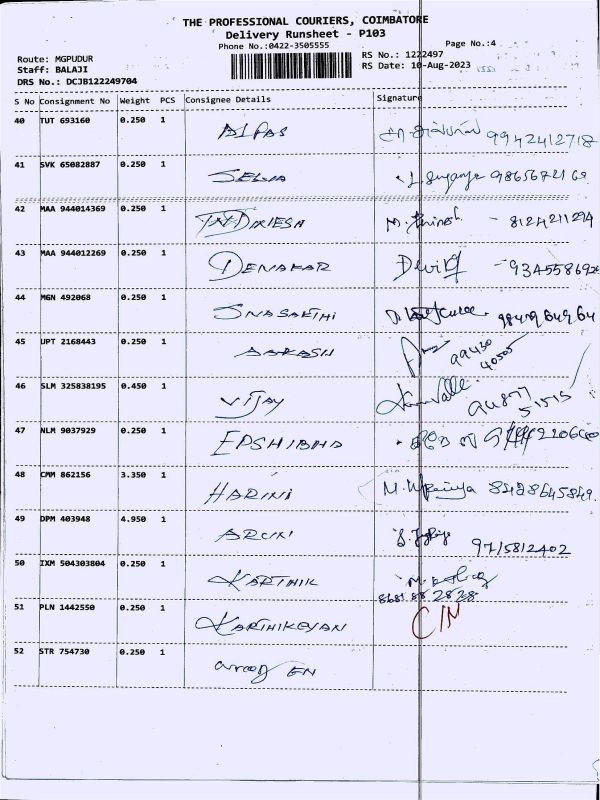 THE PROFESSIONAL COURIERS, COIMBATORE
Delivery Runsheet - P103
Phone No.:0422-3505555
Page No.:4
Route: MGPUDUR
RS No.: 1222497
Staff: BALAJI
RS Date: 10-Aug-2023
DRS No.: DCJB122249704
S No Consignment No Weight PCS Consignee Details Signature
40 TUT 693160 0.250 1 9942412718
41 SVK 65082887 0.250 1 SELVA
42 MAA 944014369 0.250 1 8124211294
43 MAA 944012269 0.250 1 DENAKAR Devi
44 MGN 492068 0.250 1
45 UPT 2168443 0.250 1 AAKASH 99430
40505
46 SLM 325838195 0.450 1 VIJAY
51515
47 NLM 9037929 0.250 1 EPSHIBHA
48 CMM 862156 3.350 1 HARINI
49 DPM 403948 4.950 1 9715812402
50 IXM 504303804 0.250 1 KARTHIK
8681 88 2828
51 PLN 1442550 0.250 1 KARTHIKEYAN
52 STR 754730 0.250 1 EN